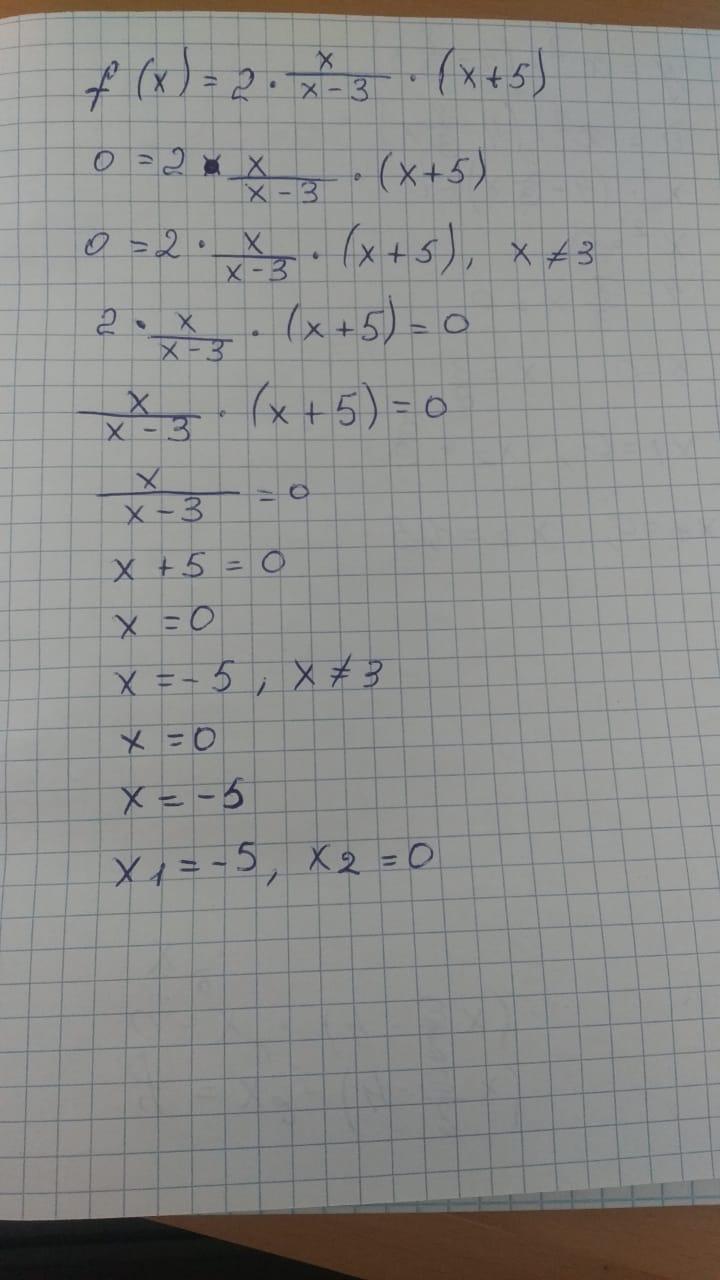 f(x) = 2 · x/(x-3) · (x+5)
0 = 2 · x/(x-3) · (x+5)
0 = 2 · x/(x-3) · (x+5), x ≠ 3
2 · x/(x-3) · (x+5) = 0
x/(x-3) · (x+5) = 0
x/(x-3) = 0
x + 5 = 0
x = 0
x = -5, x ≠ 3
x = 0
x = -5
x₁ = -5, x₂ = 0